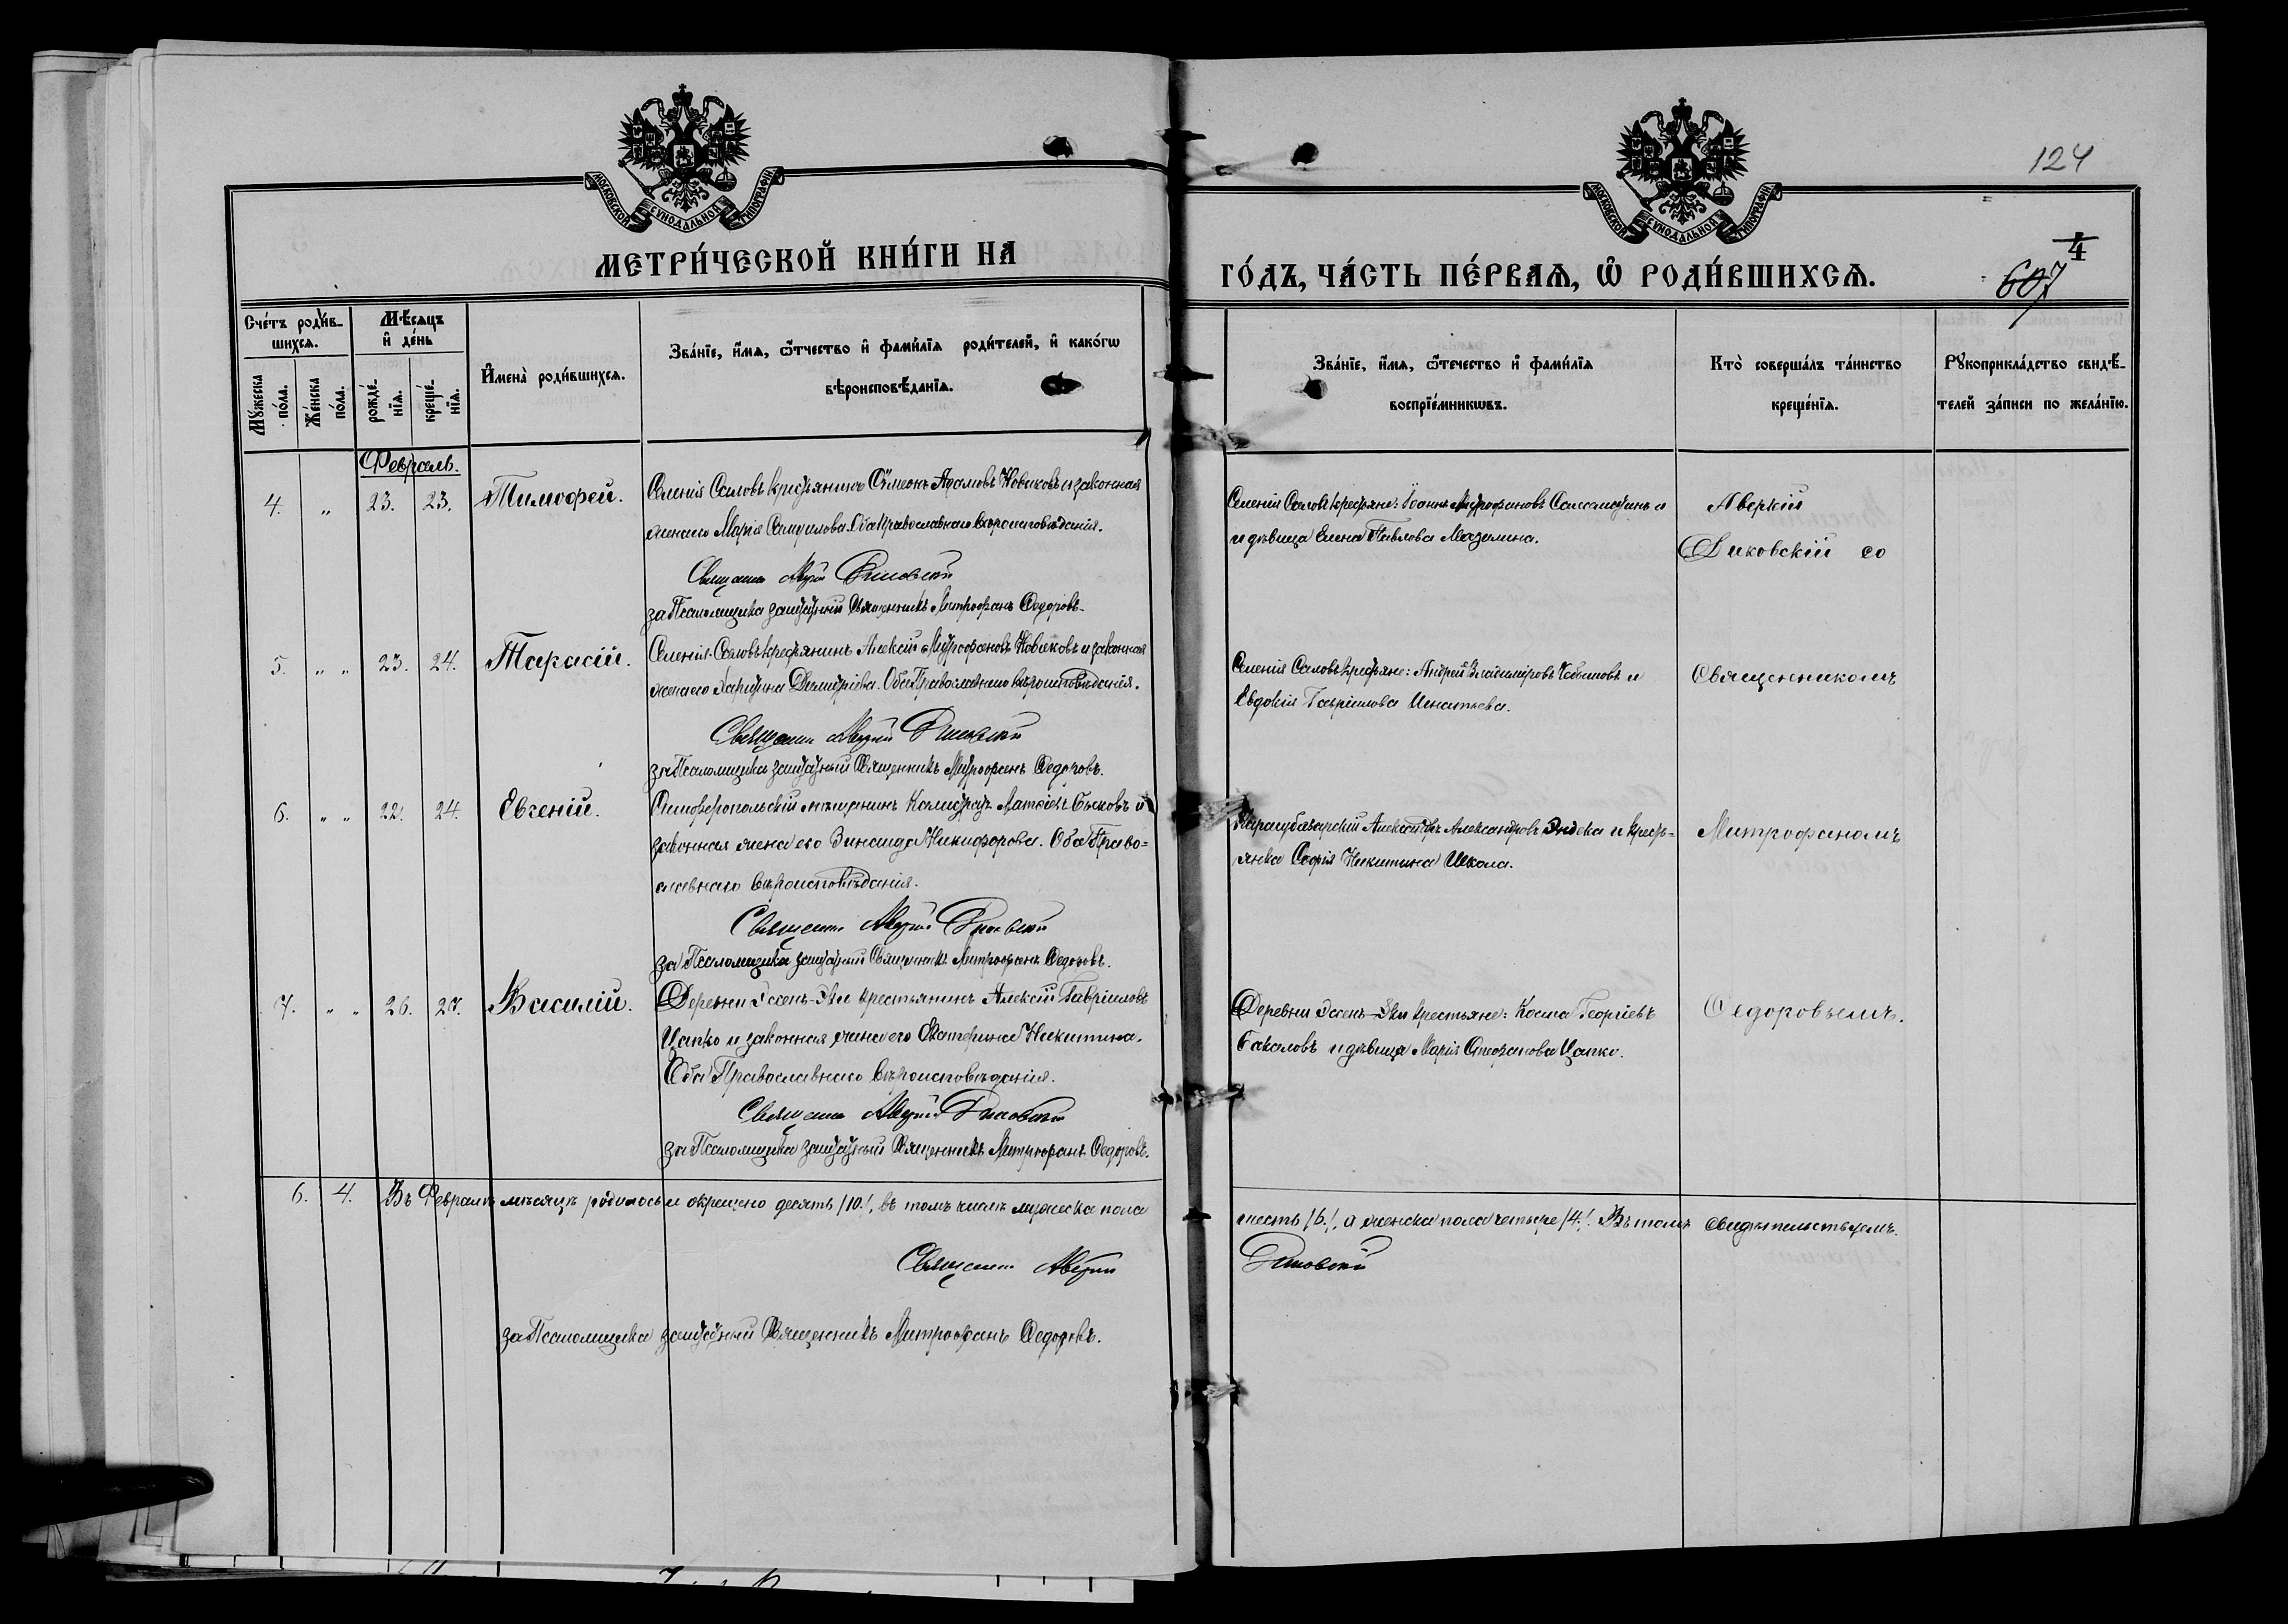 124
МОСКОВСКОЙ СѴНОДАЛЬНОЙ ТИПОГРАФІИ
МОСКОВСКОЙ СѴНОДАЛЬНОЙ ТИПОГРАФІИ
МЕТРИ́ЧЕСКОЙ КНИ́ГИ НА
ГО́ДЪ, ЧА́СТЬ ПЕ́РВАѦ, Ѡ РОДИ́ВШИХСѦ.
4
607
Сче́тъ роди́в-
шихсѧ.
Мѣ́сѧцъ
и҆ де́нь
Мꙋ́жеска
по́ла.
Же́нска
по́ла.
рожде́-
нїѧ.
креще́-
нїѧ.
И҆мена̀ роди́вшихсѧ.
Зва́нїе, и҆́мѧ, ѻ҆́тчество и҆ фами́лїѧ роди́телей, и҆ како́гѡ
вѣроисповѣ́данїѧ.
Зва́нїе, и҆́мѧ, ѻ҆́течество и҆ фами́лїѧ
воспрїе́мникѡвъ.
Кто̀ соверша́лъ та́инство
креще́нїѧ.
Рꙋкоприкла́дство свидѣ́-
телей за́писи по жела́нїю.
Февраль.
4. " 23. 23. Тимофей.
Селенія Саловъ крестьянинъ Симеонъ Адамовъ Новиковъ и законная
жена его Марія Самуилова. Оба Православнаго вѣроисповѣданія.
Священникъ Аверкій Диковскій
за Псаломщика заштатный Священникъ Митрофанъ Федоровъ.
Селенія Саловъ крестьяне: Іоаннъ Митрофановъ и
и дѣвица Елена Павлова Мазолина.
Аверкій
Диковскій со
5. " " 23. 24. Тарасій.
Селенія Саловъ крестьянинъ Алексій Митрофановъ Новиковъ и законная
жена его Харитина Димитріева. Оба Православнаго вѣроисповѣданія.
Священникъ Аверкій Диковскій
за Псаломщика заштатный Священникъ Митрофанъ Федоровъ.
Селенія Саловъ крестьяне: Андрей Владиміровъ и
Евдокія Гавріилова Игнатьева.
Священникомъ
6. " " 22. 24. Евгеній.
Симферопольскій мѣщанинъ Калистратъ Матѳіевъ Быковъ и
законная жена его Зинаида Никифорова. Оба Право=
славнаго вѣроисповѣданія.
Священникъ Аверкій Диковскій
за Псаломщика заштатный Священникъ Митрофанъ Федоровъ.
Карасубазарскій Александръ Александровъ и кресть=
янка Софія Никитина Школа.
Митрофаномъ
7. " " 26. 27. Василій.
Деревни Эссенъ-Эки крестьянинъ Алексій Гавріиловъ
Цапко и законная жена его Екатерина Никитина.
Оба Православнаго вѣроисповѣданія.
Священникъ Аверкій Диковскій
за Псаломщика заштатный Священникъ Митрофанъ Федоровъ.
Деревни Эссенъ-Эки крестьяне: Косма Георгіевъ
Бакаловъ и дѣвица Марія Стефанова Цапко.
Федоровымъ.
6. 4. Въ Февралѣ мѣсяцѣ родилось и окрещено десять /10/, въ томъ числѣ мужеска пола
шесть /6./, а женска пола четыре /4./. Въ томъ свидѣтельствуемъ.
Священникъ Аверкій Диковскій
за Псаломщика заштатный Священникъ Митрофанъ Федоровъ.